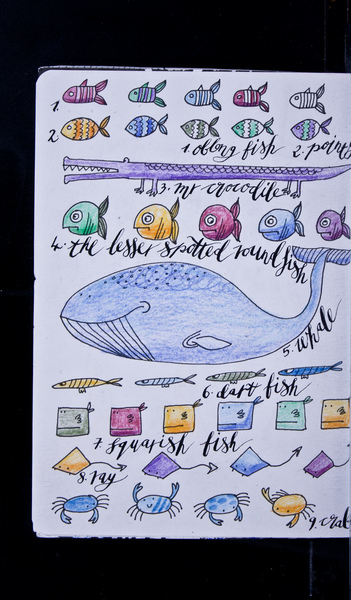 1.
2
1. oblong fish 2. points
3. mr crocodile
4. the lesser spotted roundfish
5. whale
6. dart fish
7. squarish fish
8. ray
9. crab